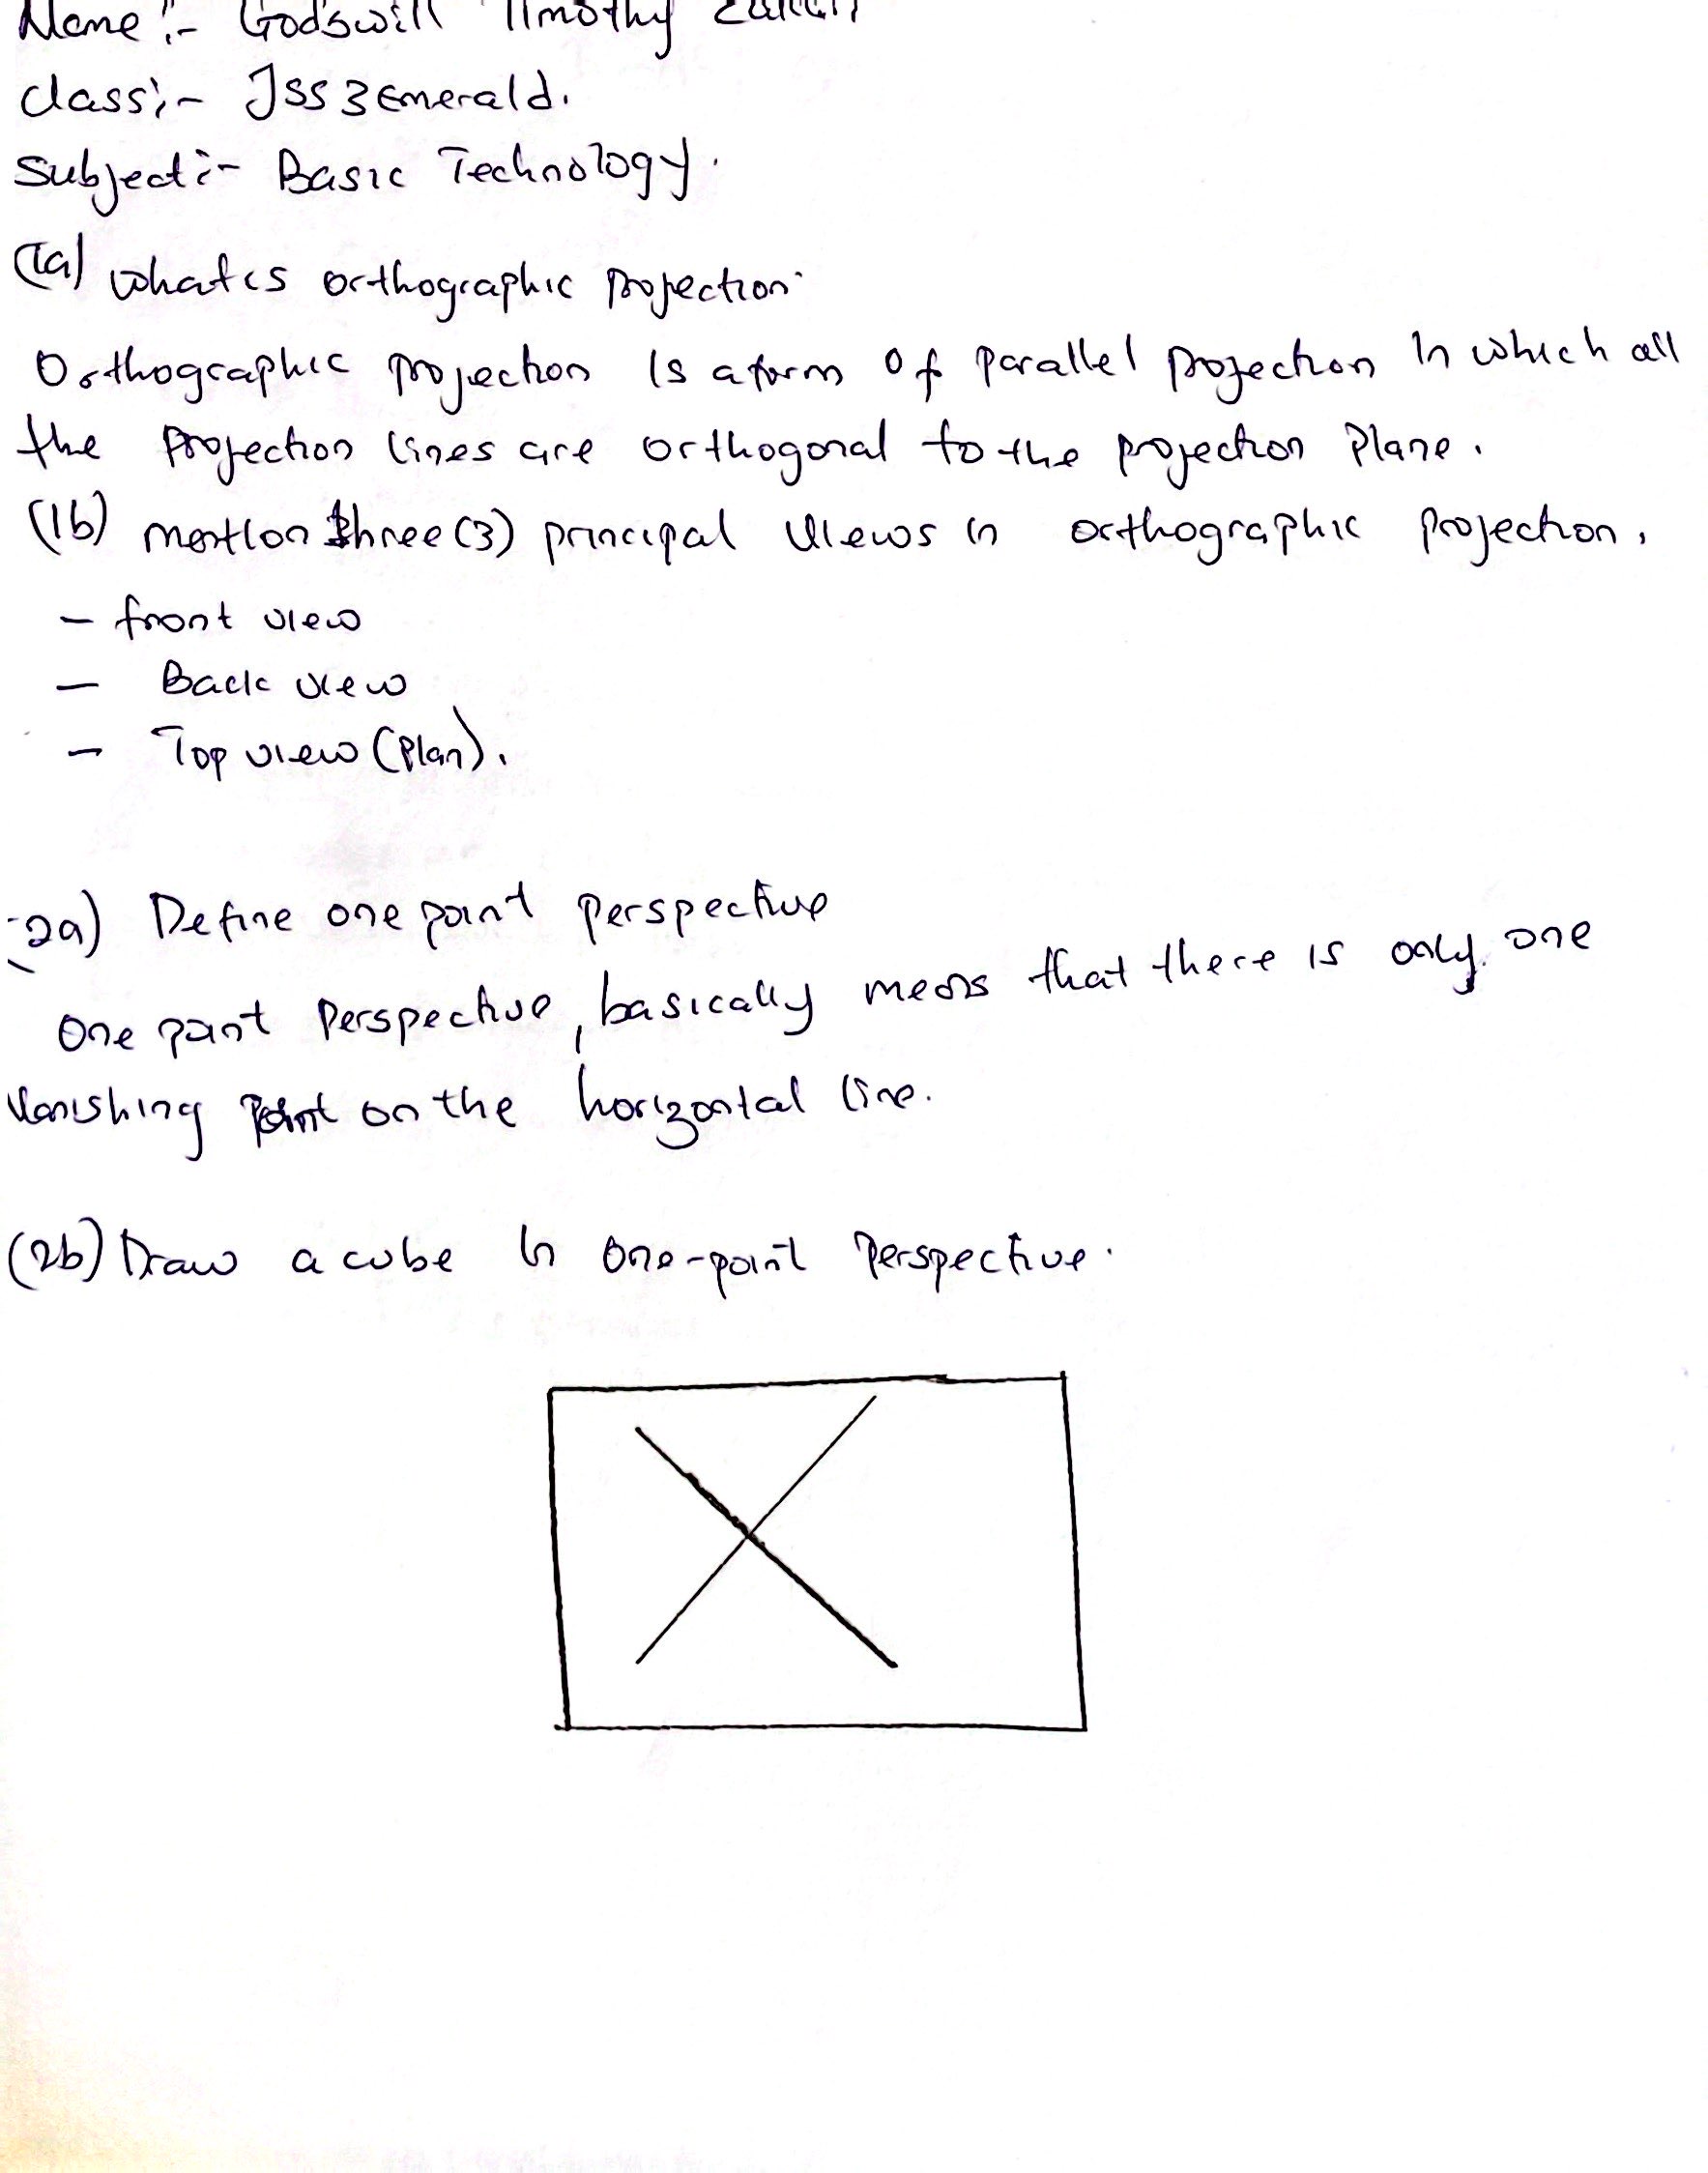 Name :- Godswill Timothy
class :- Jss 3 Emerald.
Subject :- Basic Technology.
(1a) what is orthographic projection
Orthographic projection is a form of parallel projection in which all
the projection lines are orthogonal to the projection plane.
(1b) mention three (3) principal views in orthographic projection.
- front view
- Back view
- Top view (Plan).
(2a) Define one point perspective
One point Perspective, basically means that there is only one
Vanishing point on the horizontal line.
(2b) Draw a cube in one-point Perspective.